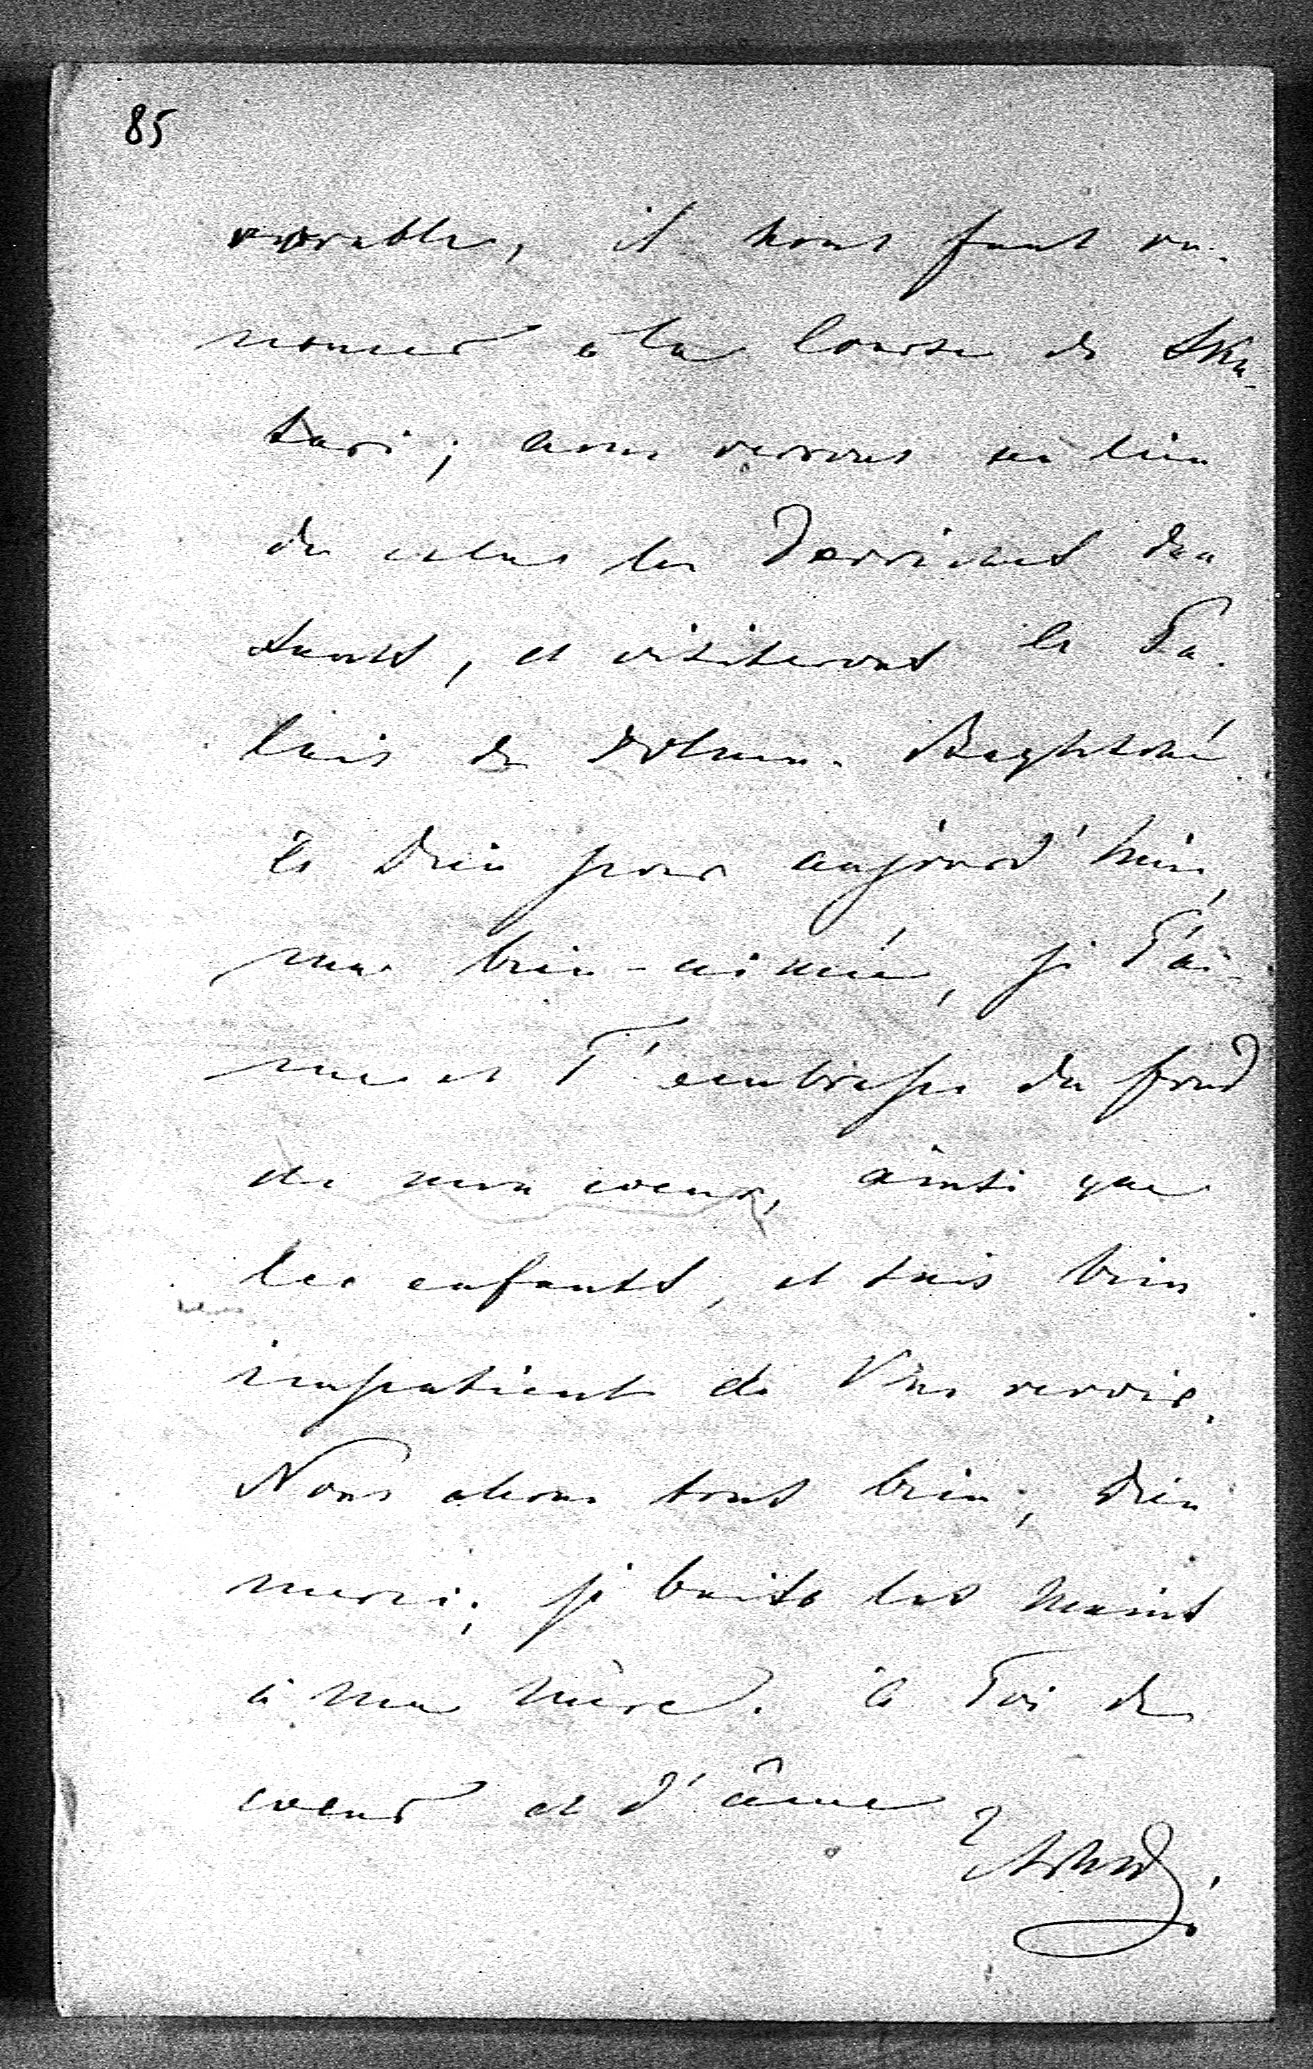 85
vorable, il nous faut re-
noncer à la course de Sku-
tari; nous verrons au lieu
de cela les Derviches dan
sants, et visiterons le Pa-
lais de Dolma-Baghtché.
à Dieu pour aujourd'hui,
ma bien-aimée, je T'ai-
me et T'embrasse du fond
de mon coeur, ainsi que
les enfants, et suis bien
impatient de Vous revoir.
Nous allons tous bien, Dieu
merci; je baise les mains
à ma mère. à Toi de
coeur et d'âme